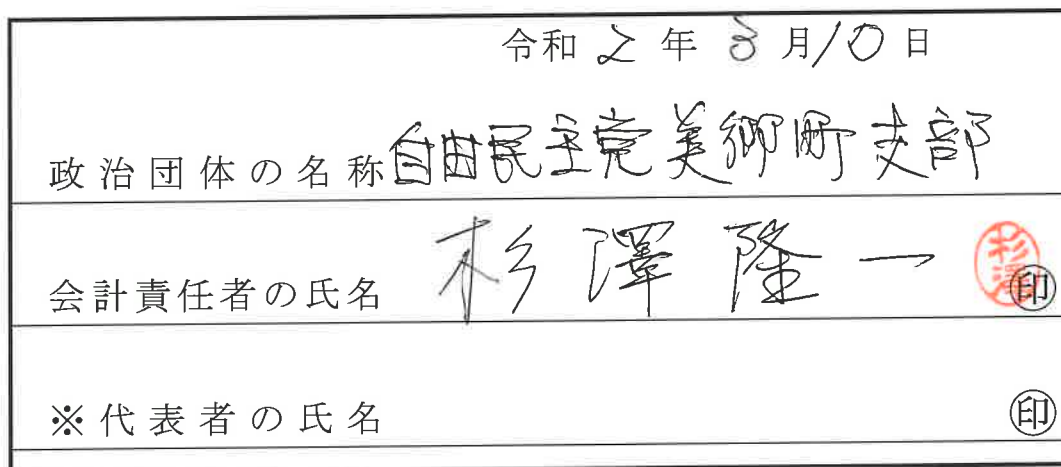 令和2年3月10日
政治団体の名称 自由民主党美郷町支部
会計責任者の氏名 杉澤隆一 杉澤 ㊞
※代表者の氏名 ㊞